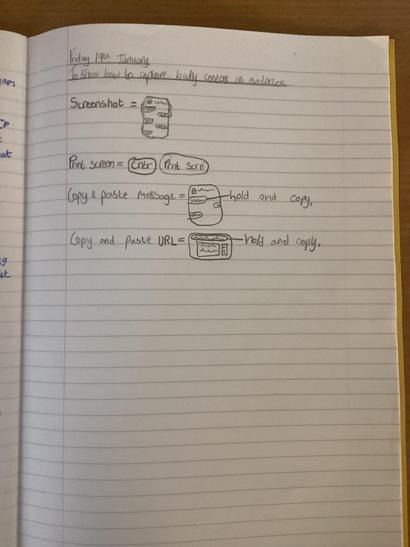 Friday 19th January
To know how to capture bully content as evidence.
Screenshot =
Print screen = Cntr Print Scrn
Copy & paste message = hold and copy.
Copy and paste URL = hold and copy.